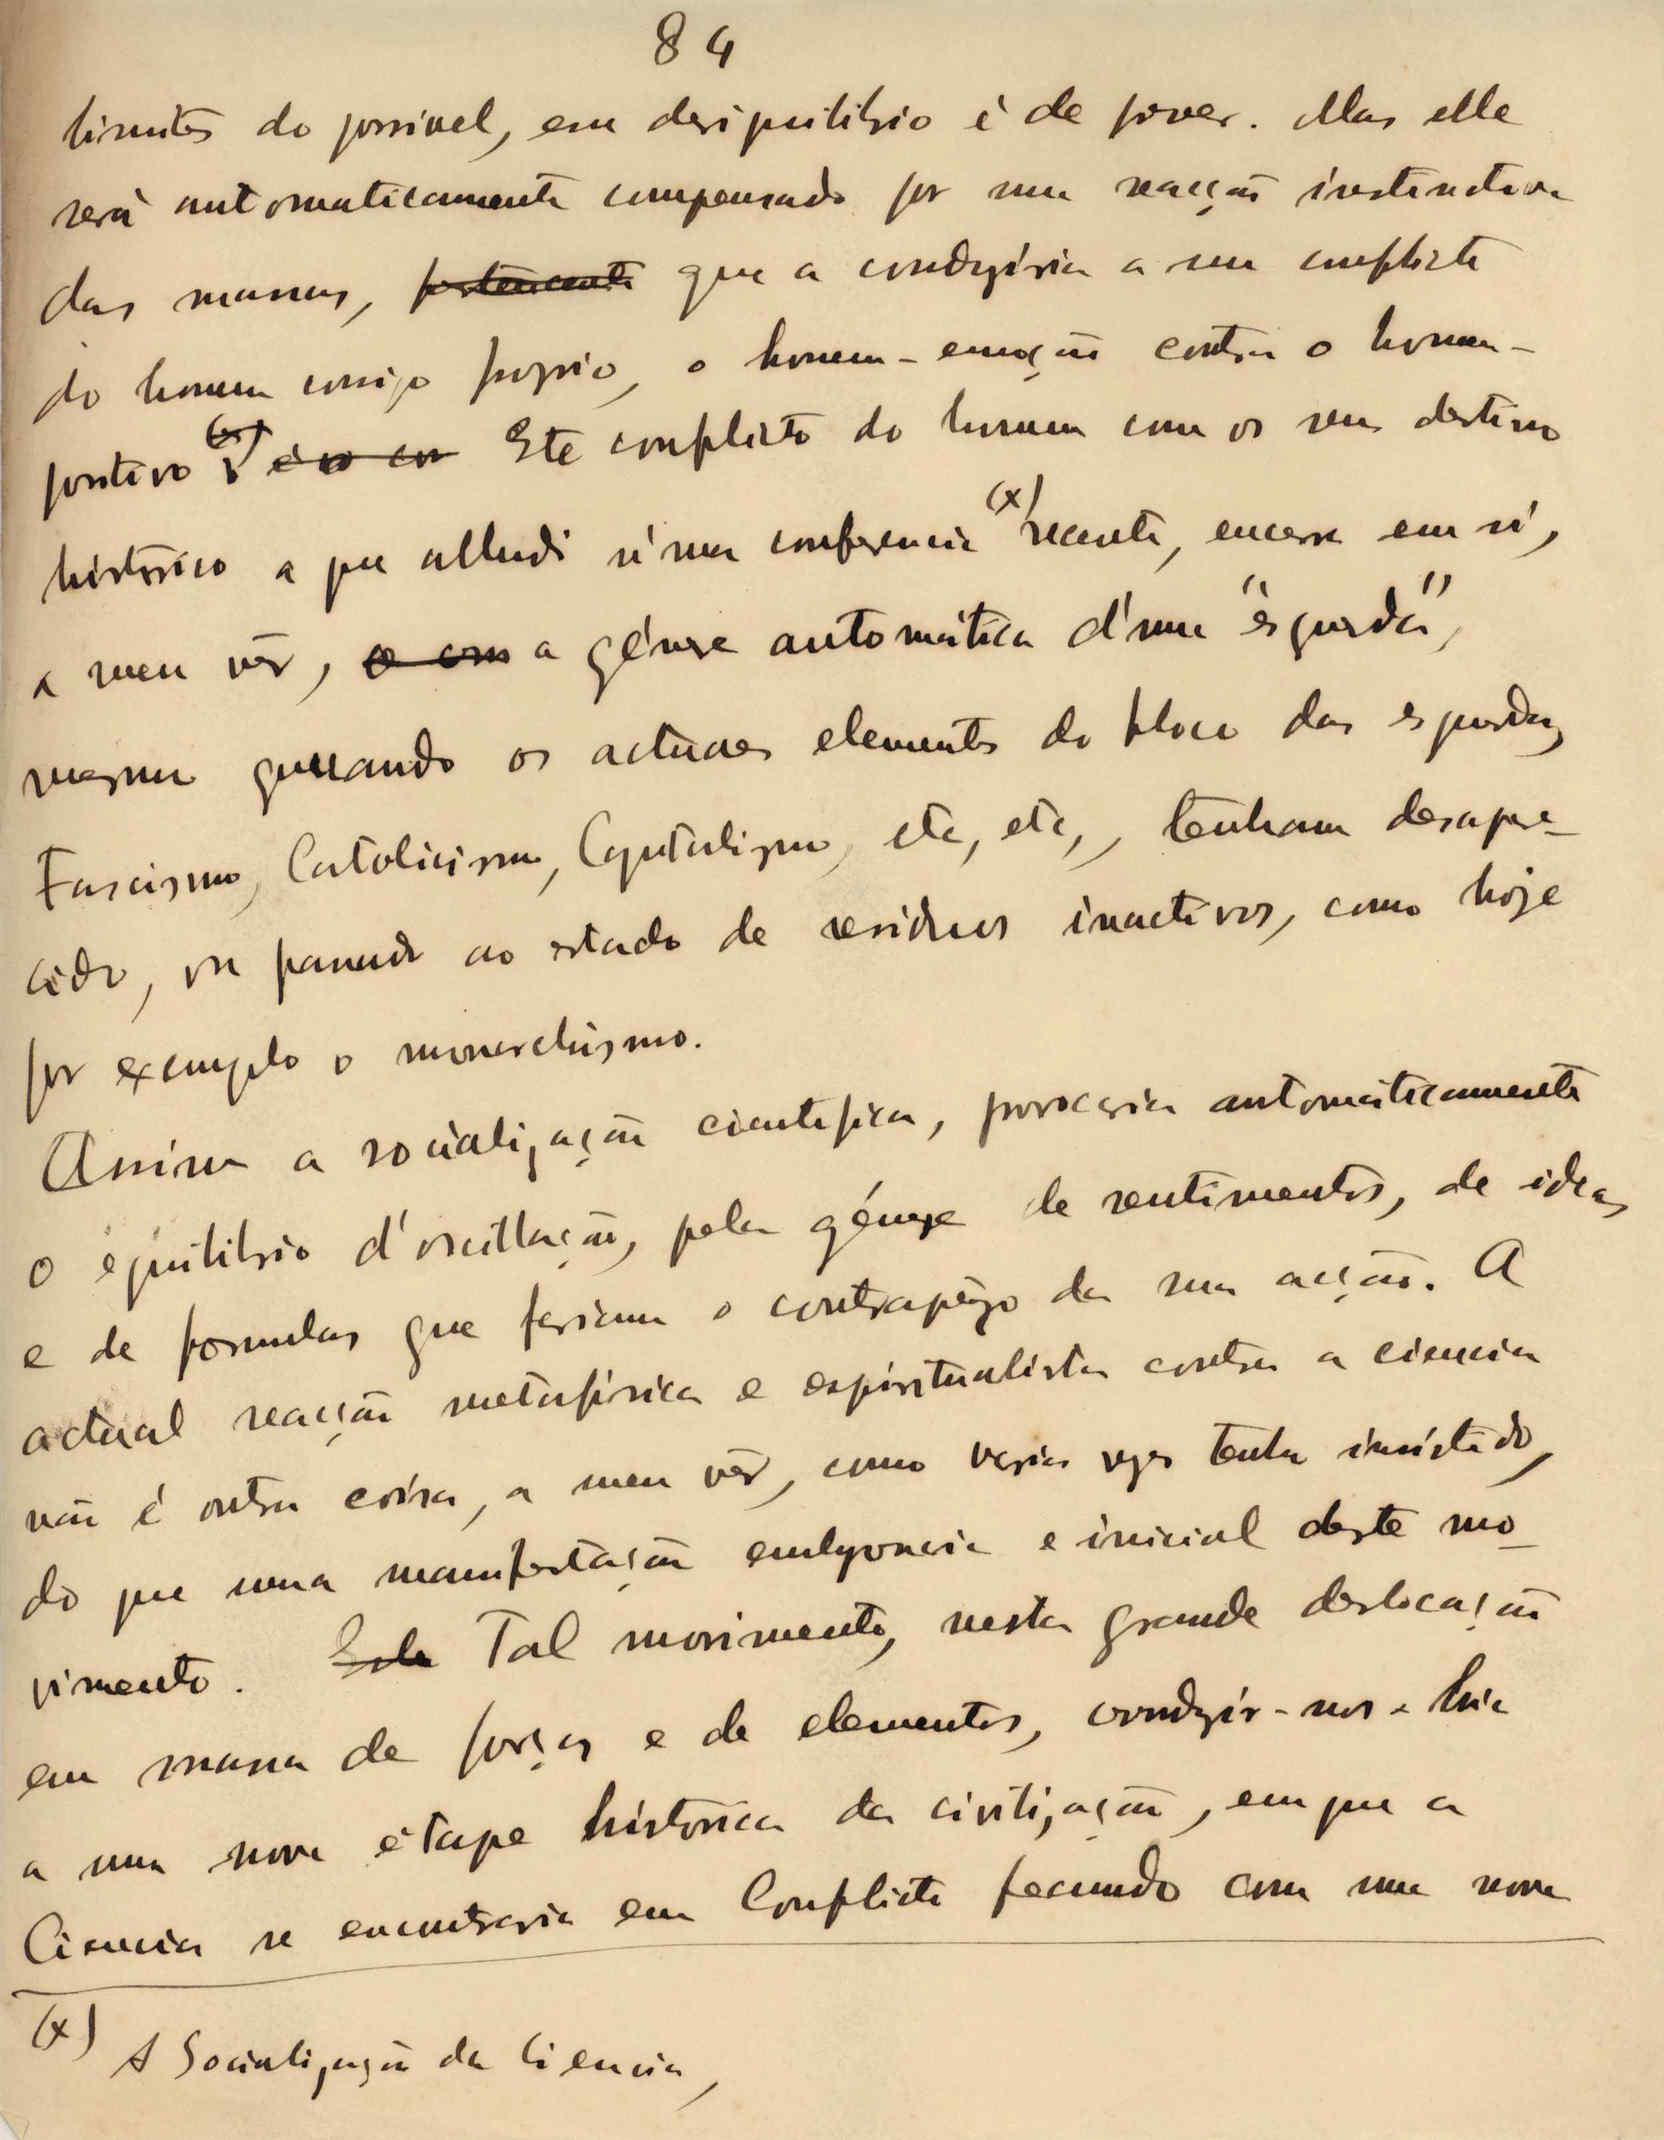 84
limites do possivel, em desiquilibrio é de prever. Mas elle
será automaticamente compensado por uma reacção instinctiva
das massas, que a conduziria a um conflicto
do homem consigo proprio, o homem-emoção contra o homem-
positivo. Este conflicto do homem com os seus destino
historico a que alludi n'uma conferencia (x) recente, encerra em si,
a meu vêr, a génese automática d'uma "esquerda",
mesmo quando os actuaes elementos do bloco das esquerdas,
Fascismo, Catolicismo, Capitalismo, etc, etc, tenham desapare-
cido, ou passado ao estado de residuos inactivos, como hoje
por exemplo o monarchismo.
Assim a socialização cientifica, provocaria automáticamente
o equilibrio d'oscillação, pela génese de sentimentos, de ideas
e de formulas que fariam o contrapêzo da sua acção. A
actual reacção metafísica e espiritualista contra a ciencia
não é outra coisa, a meu vêr, como varias vezes tenho insistido,
do que uma manifestação embryonaria e inicial deste mo-
vimento. Tal movimento, nesta grande deslocação
em massa de forças e de elementos, conduzir-nos-hia
a uma nova étape histórica da civilização, em que a
Ciencia se encontraria em Conflicto fecundo com uma nova
(x) A Socialização da Ciencia,